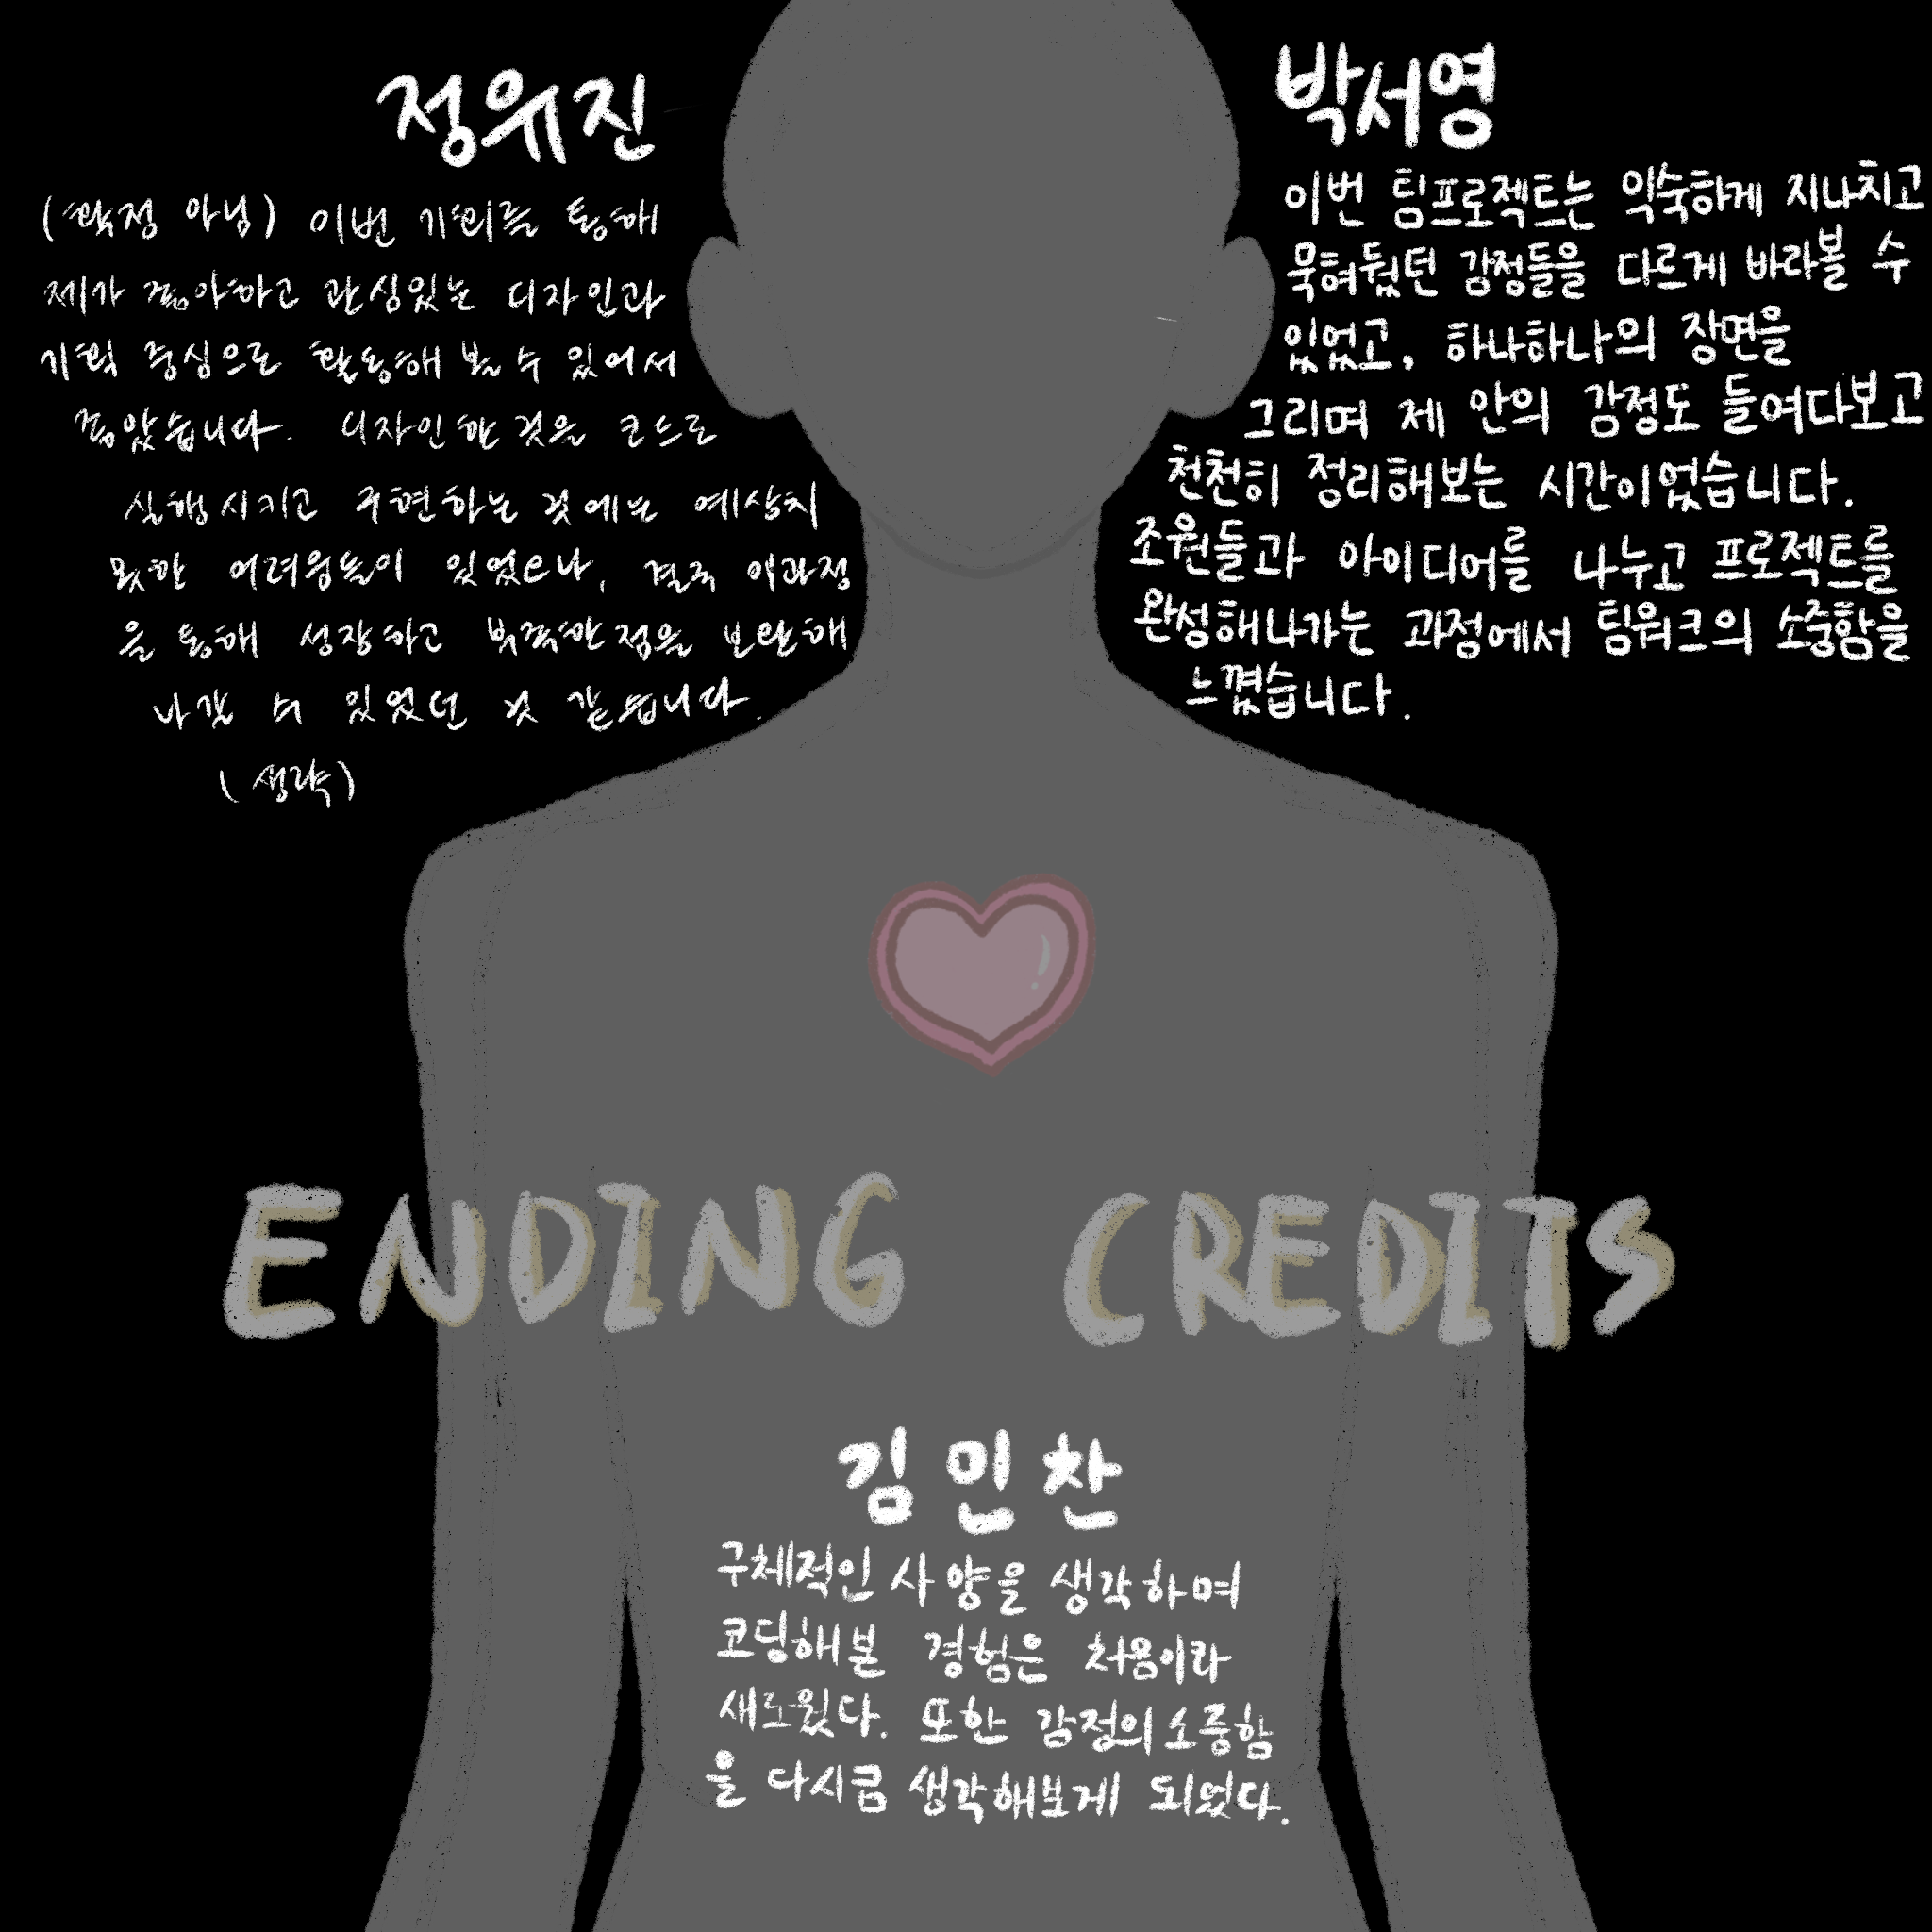 정유진
(확정 아님) 이번 기회를 통해
제가 좋아하고 관심있는 디자인과
기획 중심으로 활동해 볼 수 있어서
좋았습니다. 디자인한 것을 코드로
실행시키고 구현하는 것에는 예상치
못한 어려움들이 있었으나, 결국 이과정
을 통해 성장하고 부족한점을 보완해
나갈 수 있었던 것 같습니다.
(생략)
박서영
이번 팀프로젝트는 익숙하게 지나치고
묵혀뒀던 감정들을 다르게 바라볼 수
있었고, 하나하나의 장면을
그리며 제 안의 감정도 들여다보고
천천히 정리해보는 시간이었습니다.
조원들과 아이디어를 나누고 프로젝트를
완성해나가는 과정에서 팀워크의 소중함을
느꼈습니다.
ENDING CREDITS
김민찬
구체적인 사양을 생각하며
코딩해본 경험은 처음이라
새로웠다. 또한 감정의소중함
을 다시금 생각해보게 되었다.